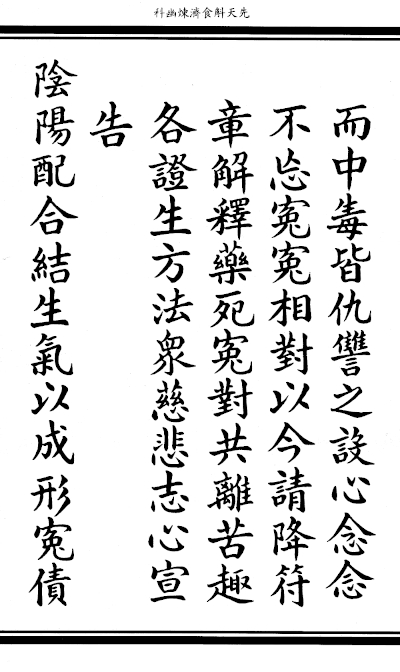 科幽煉濟食斛天先
而中毒皆仇讐之設心念念
不忘寃寃相對以今請降符
章解釋藥死寃對共離苦趣
各證生方法衆慈悲志心宣
告
陰陽配合結生氣以成形寃債